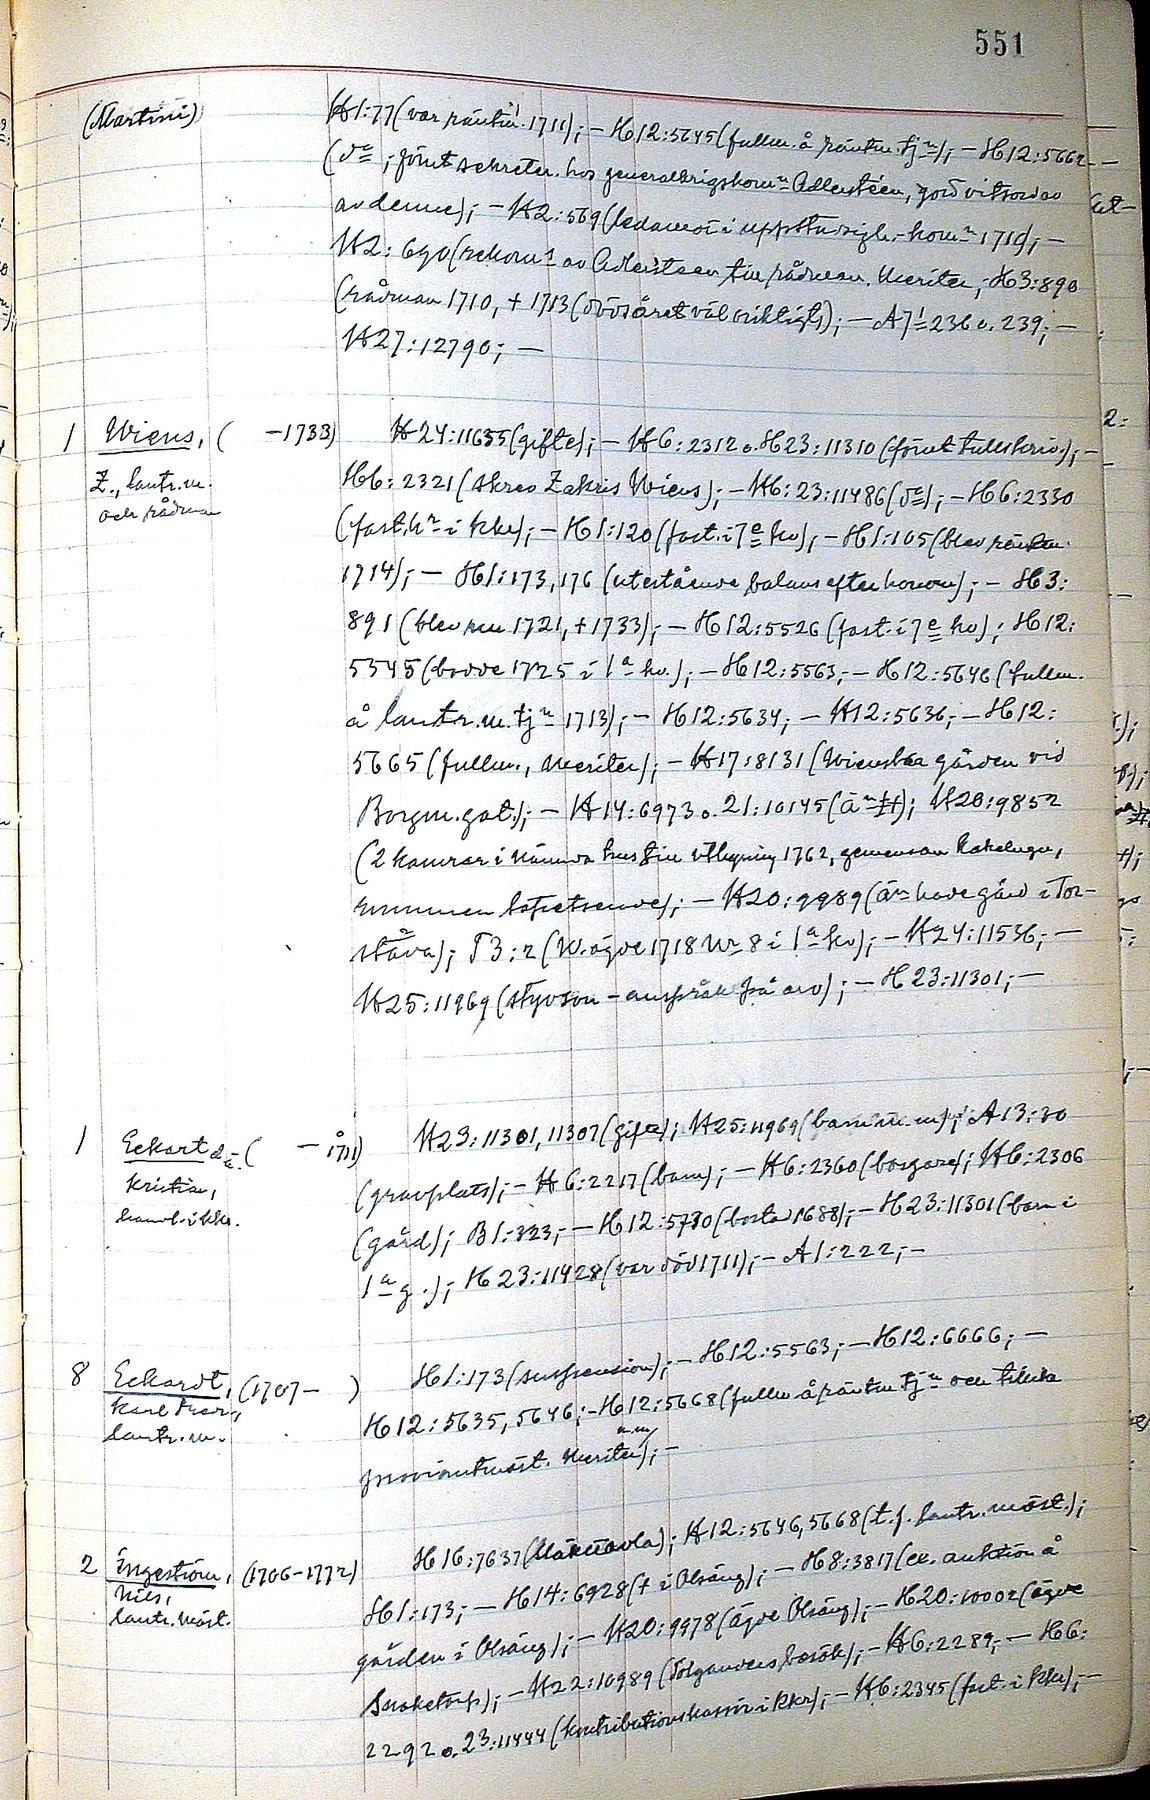 551
(Martini)
H1:77 (var räntm. 1711); – H12:5645 (fullm. å räntm. tjn); – H12:5662 –
(do; förut sekreter. hos generalkrigskomn Adlersteen, god vitsord av
av denne); – H2:569 (ledamot i uppstudsigh.-komn 1710); –
H2:690 (rekomn av Adlersteen till rådman. Meriter; H3:890
(rådman 1710, + 1713 (dödsåret väl oriktigt); – A71 236 o. 239; –
H27:12790; –
1 Wiens, ( –1733)
Z., lantr.m.
och rådman
H24:11655 (gifte); – H6:2312 o. H23:11310 (förut tullskriv.); –
H6:2321 (skrev Zakris Wiens); – H6:23:11486 (do); – H6:2330
(fast.hr i kkr); – H1:120 (fast. i 7e kv); – H1:105 (blev räntm.
1714); – H1:173, 176 (utestående balans efter honom); – H3:
891 (blev rm 1721, + 1733); – H12:5526 (fast. i 7e kv); H12:
5545 (bodde 1725 i 1a kv.); – H12:5563; – H12:5646 (fullm.
å lantr.m. tjn 1713); – H12:5634; – H12:5636; – H12:
5665 (fullm., meriter); – H17:8131 (Wienska gården vid
Borgm.gat.); – H14:6973 o. 21:10145 (än); H20:9852
(2 kamrar i nämnda hus till uthyrning 1762, gemensam kakelugn,
rummen); – H20:9989 (än hade gård i Tor-
stäva); T3:2 (W. ägde 1718 Nr 8 i 1a kv); – H24:11536; –
H25:11969 (styvson – anspråk på arv); – H23:11301; –
1 Eckart d.ä. ( – å 1711)
Kristian,
handl. i kkr.
H23:11301, 11307 (gifte); H25:11969 (barn m.m); A13:30
(gravplats); – H6:2217 (barn); – H6:2360 (borgare); H6:2306
(gård); B1:323; – H12:5730 (bosta 1688); – H23:11301 (barn i
1a g.); H23:11428 (var död 1711); – A1:222; –
8 Eckardt, (1707– )
Karl Fredr.,
lantr.m.
H1:173 (suspension); – H12:5563; – H12:6666; –
H12:5635, 5646; – H12:5668 (fullm å räntm tjn och tillika
proviantmäst. Meriter m.m); –
2 Ingeström, (1706–1772)
Nils,
lantr.mäst.
H16:7637; H12:5646, 5668 (t.f. lantr.mäst.);
H1:173; – H14:6928 (+ i Olsäng); – H8:3817 (ex. auktion å
gården i Olsäng); – H20:9978 (ägde Olsäng); – H20:10002 (ägde
Snaketorp); – H22:10989 (besök); – H6:2289; – H6:
2292 o. 23:11444 (kontributionskassör i kkr); – H6:2345 (fast. i kkr); –